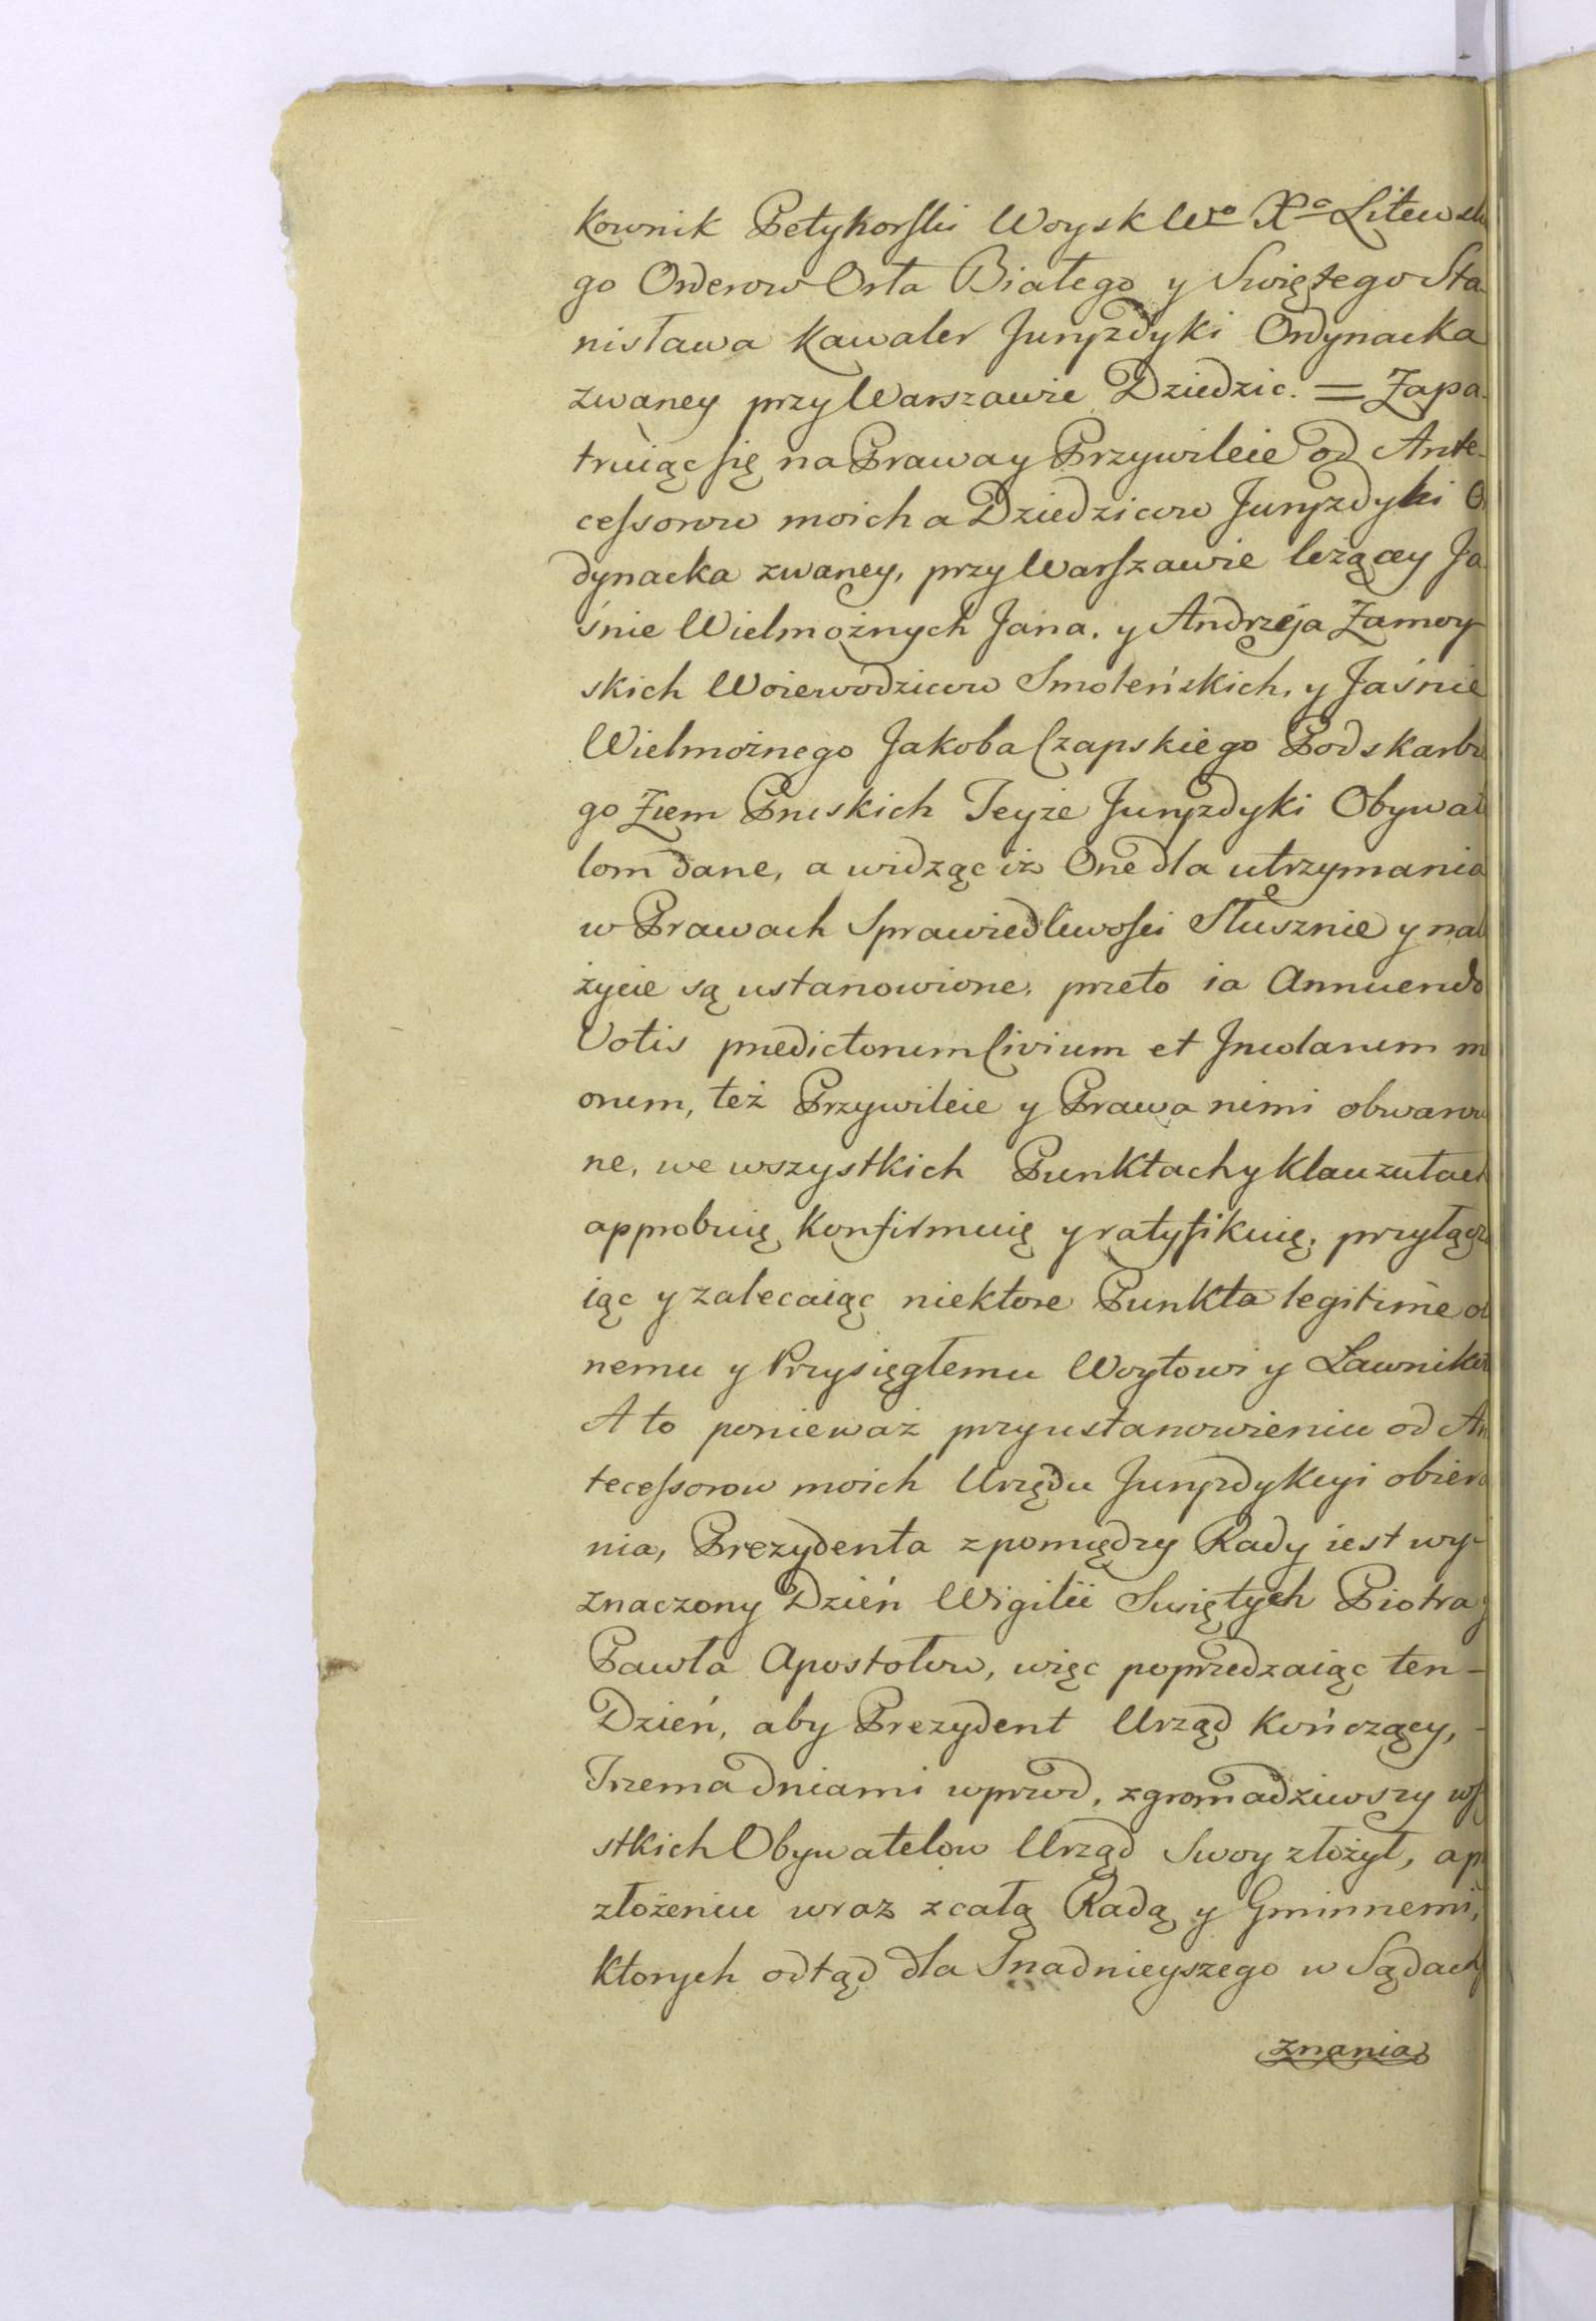 kownik Petyhorski Woysk Wo Xa Litewsk
go Orderow Orła Białego y Swiętego Sta-
nisława Kawaler Juryzdyki Ordynacka
zwaney przy Warszawie Dziedzic. = Zapa-
truiąc się na Prawa y Przywileie od Ante-
cessorow moich a Dziedzicow Juryzdyki Or
dynacka zwaney, przy Warszawie leżącey Ja
śnie Wielmożnych Jana, y Andrzeja Zamoy-
skich Woiewodzicow Smoleńskich, y Jaśnie
Wielmożnego Jakoba Czapskiego Podskarbie
go Ziem Pruskich Teyże Juryzdyki Obywat
lom dane, a widząc iż One dla utrzymania
w Prawach Sprawiedliwości Słusznie y nal
życie są ustanowione, przeto ia Annuendo
Votis praedictorum Civium et Incolarum me
orum, też Przywileie y Prawa nimi obwarow
ne, we wszystkich Punktach y Klauzułach
approbuię Konfirmuię y ratyfikuię, przyłącza
iąc y zalecaiąc niektore Punkta legitime ob
nemu y Przysięgłemu Woytowi y Ławniko
A to ponieważ przy ustanowieniu od An
tecessorow moich Urzędu Juryzdykcyi obiera
nia, Prezydenta z pomiędzy Rady iest wy-
znaczony Dzień Wigilii Swiętych Piotra y
Pawła Apostołow, więc poprzedzaiąc ten -
Dzień, aby Prezydent Urząd kończący, -
Trzema dniami wprzod, zgromadziwszy ws
stkich Obywatelow Urząd Swoy złożył, a p
złożeniu wraz z całą Radą y Gminnemi,
ktorych odtąd dla Snadnieyszego w Sądach
znania